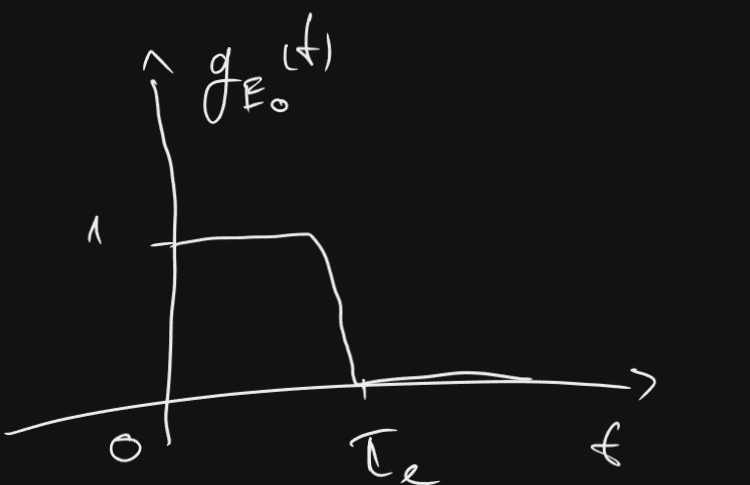 g_E₀(t)
1
0
τ_e
t